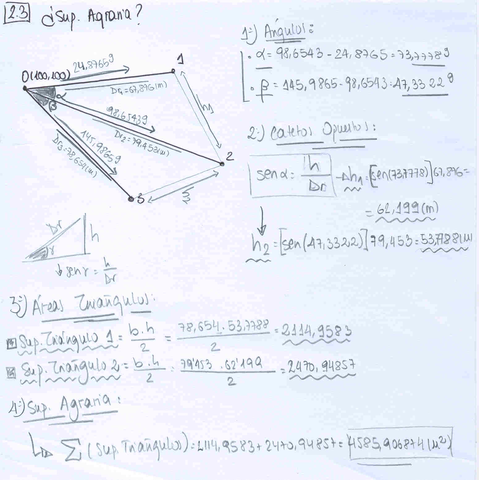 2.3 ¿Sup. Agraria?
24,8765g
1
0(100,100)
Dr1=67,896(m)
α
β
98,6543g
Dr2=79,453(m)
h1
145,9865g
2
3
Dr h
r
↓ sen r = h/Dr
1º) Ángulos:
· α = 98,6543 - 24,8765 = 73,7778g
· β = 145,9865 - 98,6543 = 47,3322g
2º) Catetos Opuestos:
sen α = h/Dr → h1 = [sen(73,7778)] 67,896 =
= 62,199(m)
h2 = [sen(47,3322)] 79,453 = 53,7788(m)
3º) Áreas Triángulos:
Sup. Triángulo 1 = b.h/2 = 78,654 . 53,7788/2 = 2114,9583
Sup. Triángulo 2 = b.h/2 = 79'453 . 62'199/2 = 2470,94857
4º) Sup. Agraria:
↳ Σ (Sup. Triángulos) = 2114,9583 + 2470,94857 = 4585,906874 (m²)